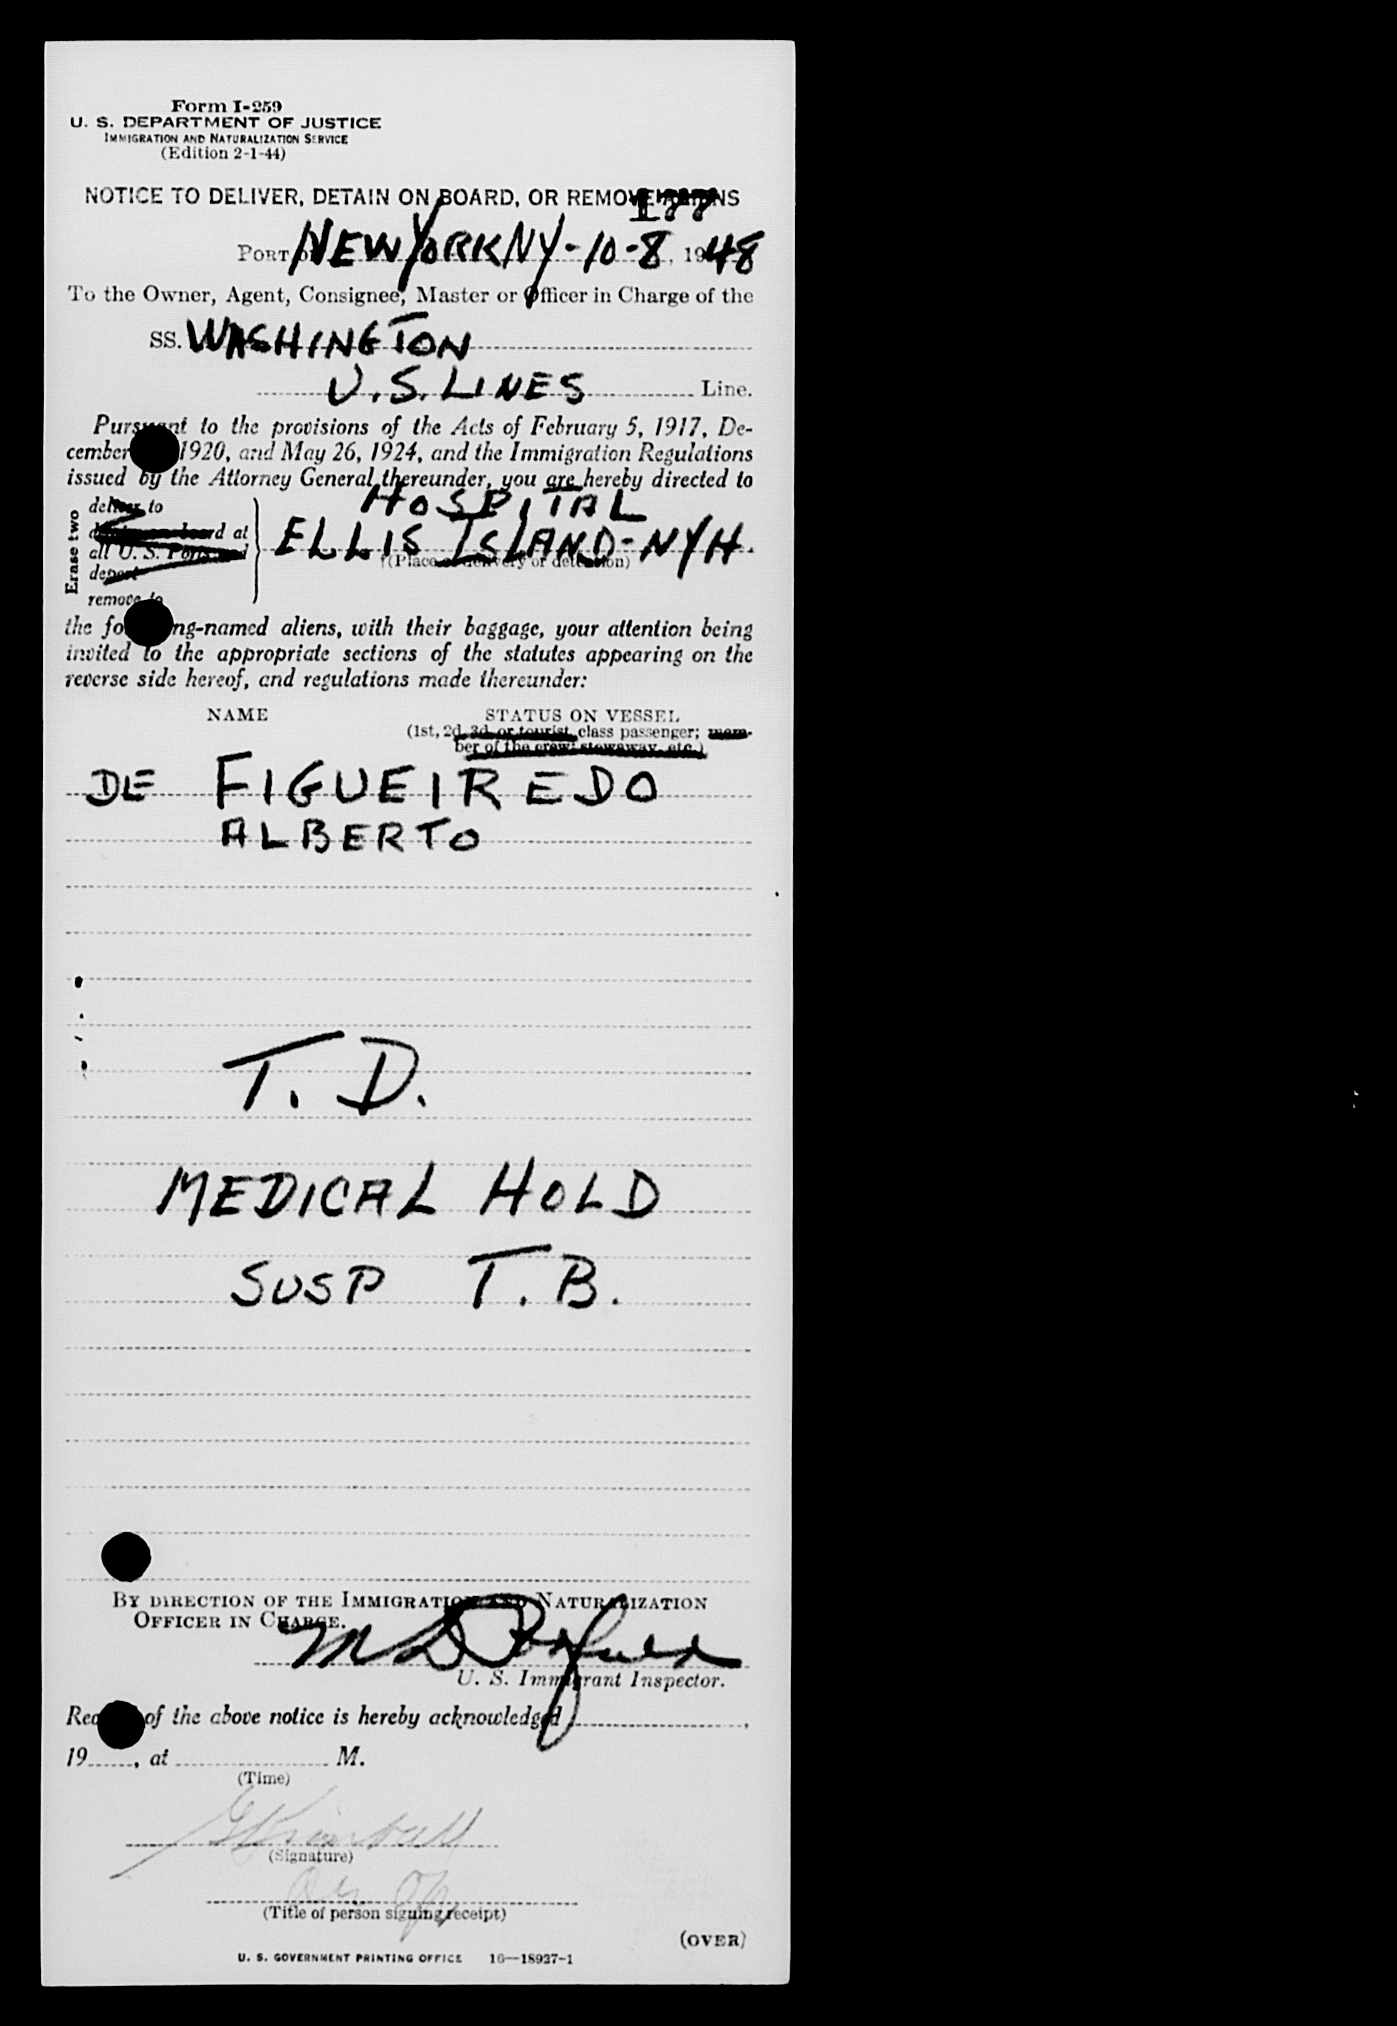 Form I-259
U. S. DEPARTMENT OF JUSTICE
IMMIGRATION AND NATURALIZATION SERVICE
(Edition 2-1-44)
NOTICE TO DELIVER, DETAIN ON BOARD, OR REMOVE ALIENS
PORT OF NEW YORK NY - 10 - 8, 1948
To the Owner, Agent, Consignee, Master or Officer in Charge of the
SS. WASHINGTON
U.S. LINES Line.
Pursuant to the provisions of the Acts of February 5, 1917, De-
cember 1920, and May 26, 1924, and the Immigration Regulations
issued by the Attorney General thereunder, you are hereby directed to
Erase two
deliver to
detain on board at
all U. S. Ports and
deport
remove to
HOSPITAL
ELLIS ISLAND - NYH.
†(Place of delivery or detention)
the following-named aliens, with their baggage, your attention being
invited to the appropriate sections of the statutes appearing on the
reverse side hereof, and regulations made thereunder:
NAME STATUS ON VESSEL
(1st, 2d, 3d, or tourist class passenger; mem-
ber of the crew, stowaway, etc.)
DE FIGUEIREDO
ALBERTO
T. D.
MEDICAL HOLD
SUSP T. B.
BY DIRECTION OF THE IMMIGRATION AND NATURALIZATION
OFFICER IN CHARGE.
U. S. Immigrant Inspector.
Receipt of the above notice is hereby acknowledged ,
19 , at M.
(Time)
(Signature)
(Title of person signing receipt)
(OVER)
U. S. GOVERNMENT PRINTING OFFICE 16—18927-1